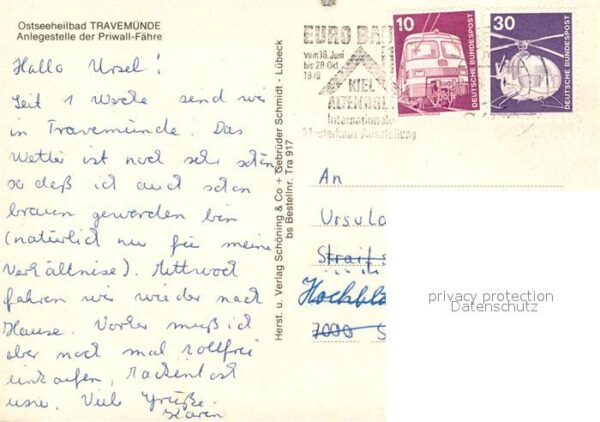 Ostseeheilbad TRAVEMÜNDE
Anlegestelle der Priwall-Fähre
Hallo Ursel!
Seit 1 Woche send wir
in Travemünde. Das
Wetter ist noch sehr schön
so daß ich auch schon
braun geworden bin
(natürlich nur für meine
Verhältnise). Mittwoch
fahren wir wieder nach
Hause. Vorher muß ich
aber noch mal zollfrei
einkaufen,
usw. Viele Grüße.
Karen
Herst. u. Verlag Schöning & Co + Gebrüder Schmidt - Lübeck
bs Bestellnr. Tra 917
EURO BAU
vom 16. Juni
bis 29. Okt.
1978
KIEL
ALTENHOLZ
Internationale
Musterhaus Ausstellung
10
DEUTSCHE BUNDESPOST
30
DEUTSCHE BUNDESPOST
An
Ursula
Hochbl
7000 S
privacy protection
Datenschutz